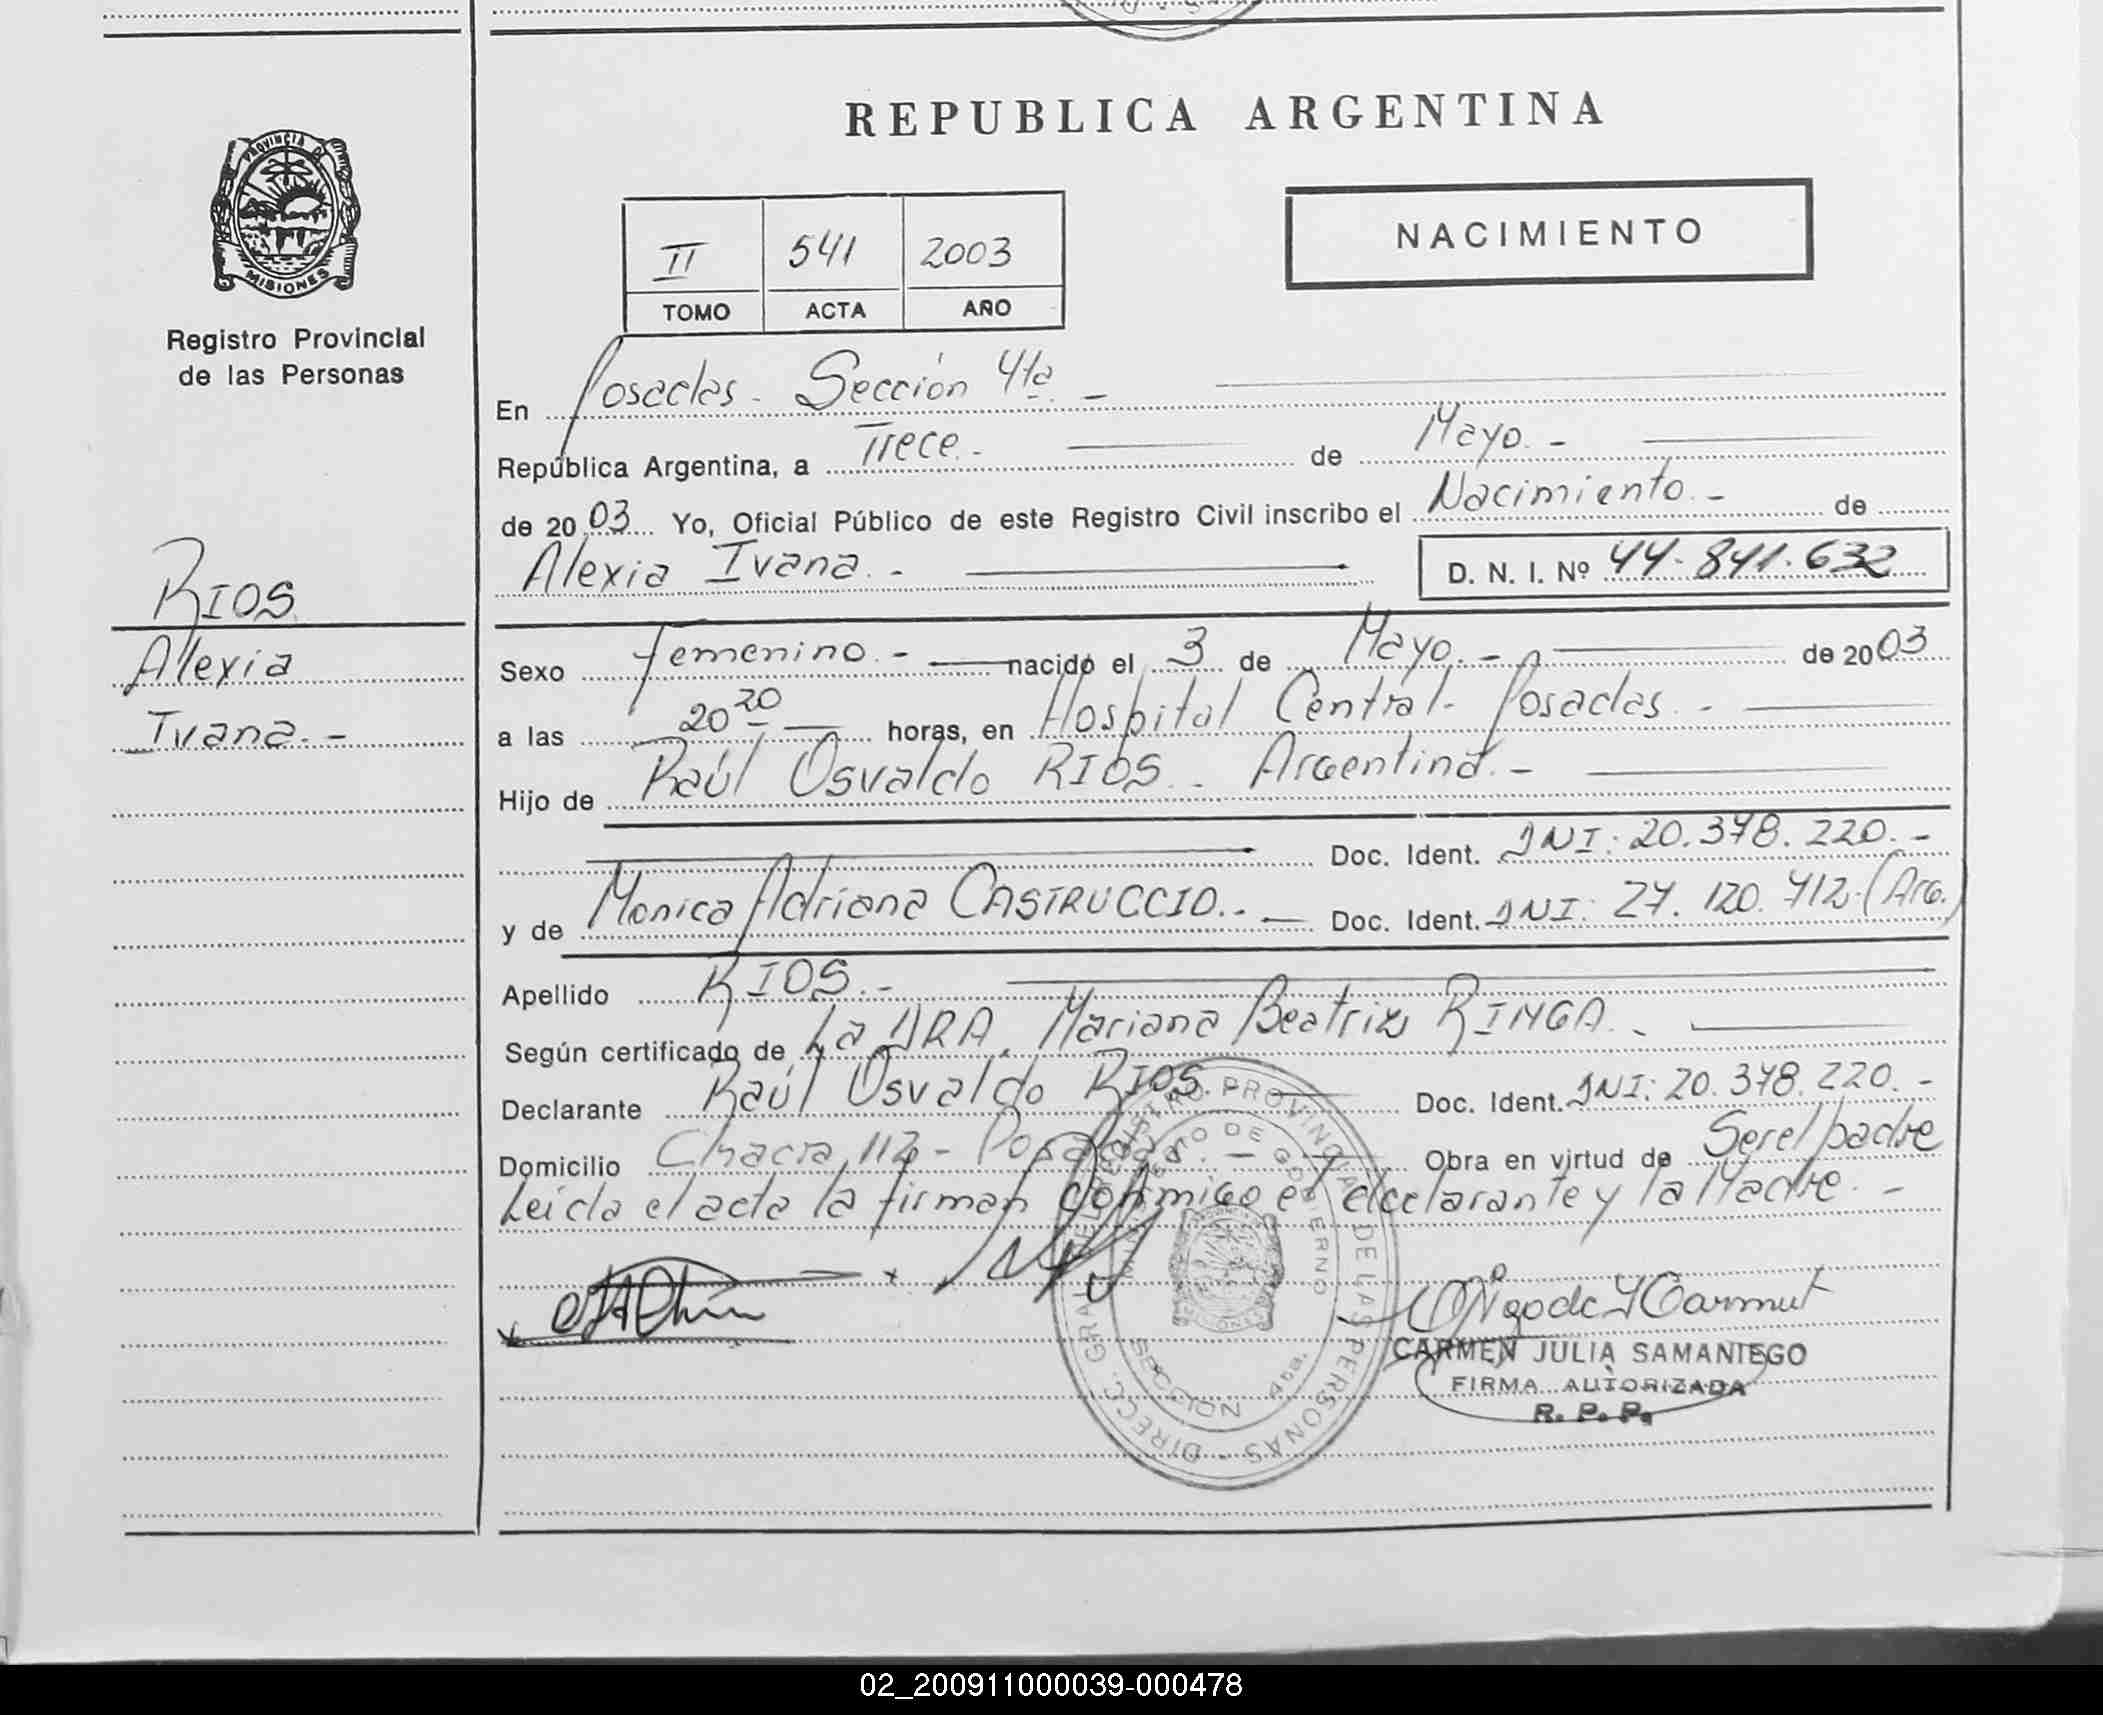 REPUBLICA ARGENTINA
PROVINCIA DE
MISIONES
Registro Provincial
de las Personas
NACIMIENTO
II 541 2003
TOMO ACTA AÑO
En Posadas - Sección 4ta. -
República Argentina, a Trece. - de Mayo. -
de 2003 Yo, Oficial Público de este Registro Civil inscribo el Nacimiento. - de
Alexia Ivana. - D. N. I. Nº 44.841.632
RIOS
Alexia
Ivana. -
Sexo femenino. - nacido el 3 de Mayo. - de 2003
a las 20 20 horas, en Hospital Central - Posadas. -
Hijo de Raúl Osvaldo RIOS. - Argentina. -
Doc. Ident. DNI: 20.378.220. -
y de Monica Adriana CASTRUCCIO. - Doc. Ident. DNI: 27.120.712 - (Arg.)
Apellido RIOS. -
Según certificado de La DRA. Mariana Beatriz RINGA. -
Declarante Raúl Osvaldo RIOS. - Doc. Ident. DNI: 20.378.220. -
Domicilio Chacra 112 - Posadas. - Obra en virtud de Ser el padre
Leída el acta la firman conmigo el declarante y la Madre. -
DIRECC. GRAL. DEL REGISTRO PROVINCIAL DE LAS PERSONAS
MINISTERIO DE GOBIERNO
SECCION 4ta.
CARMEN JULIA SAMANIEGO
FIRMA AUTORIZADA
R. P. P.
02_200911000039-000478